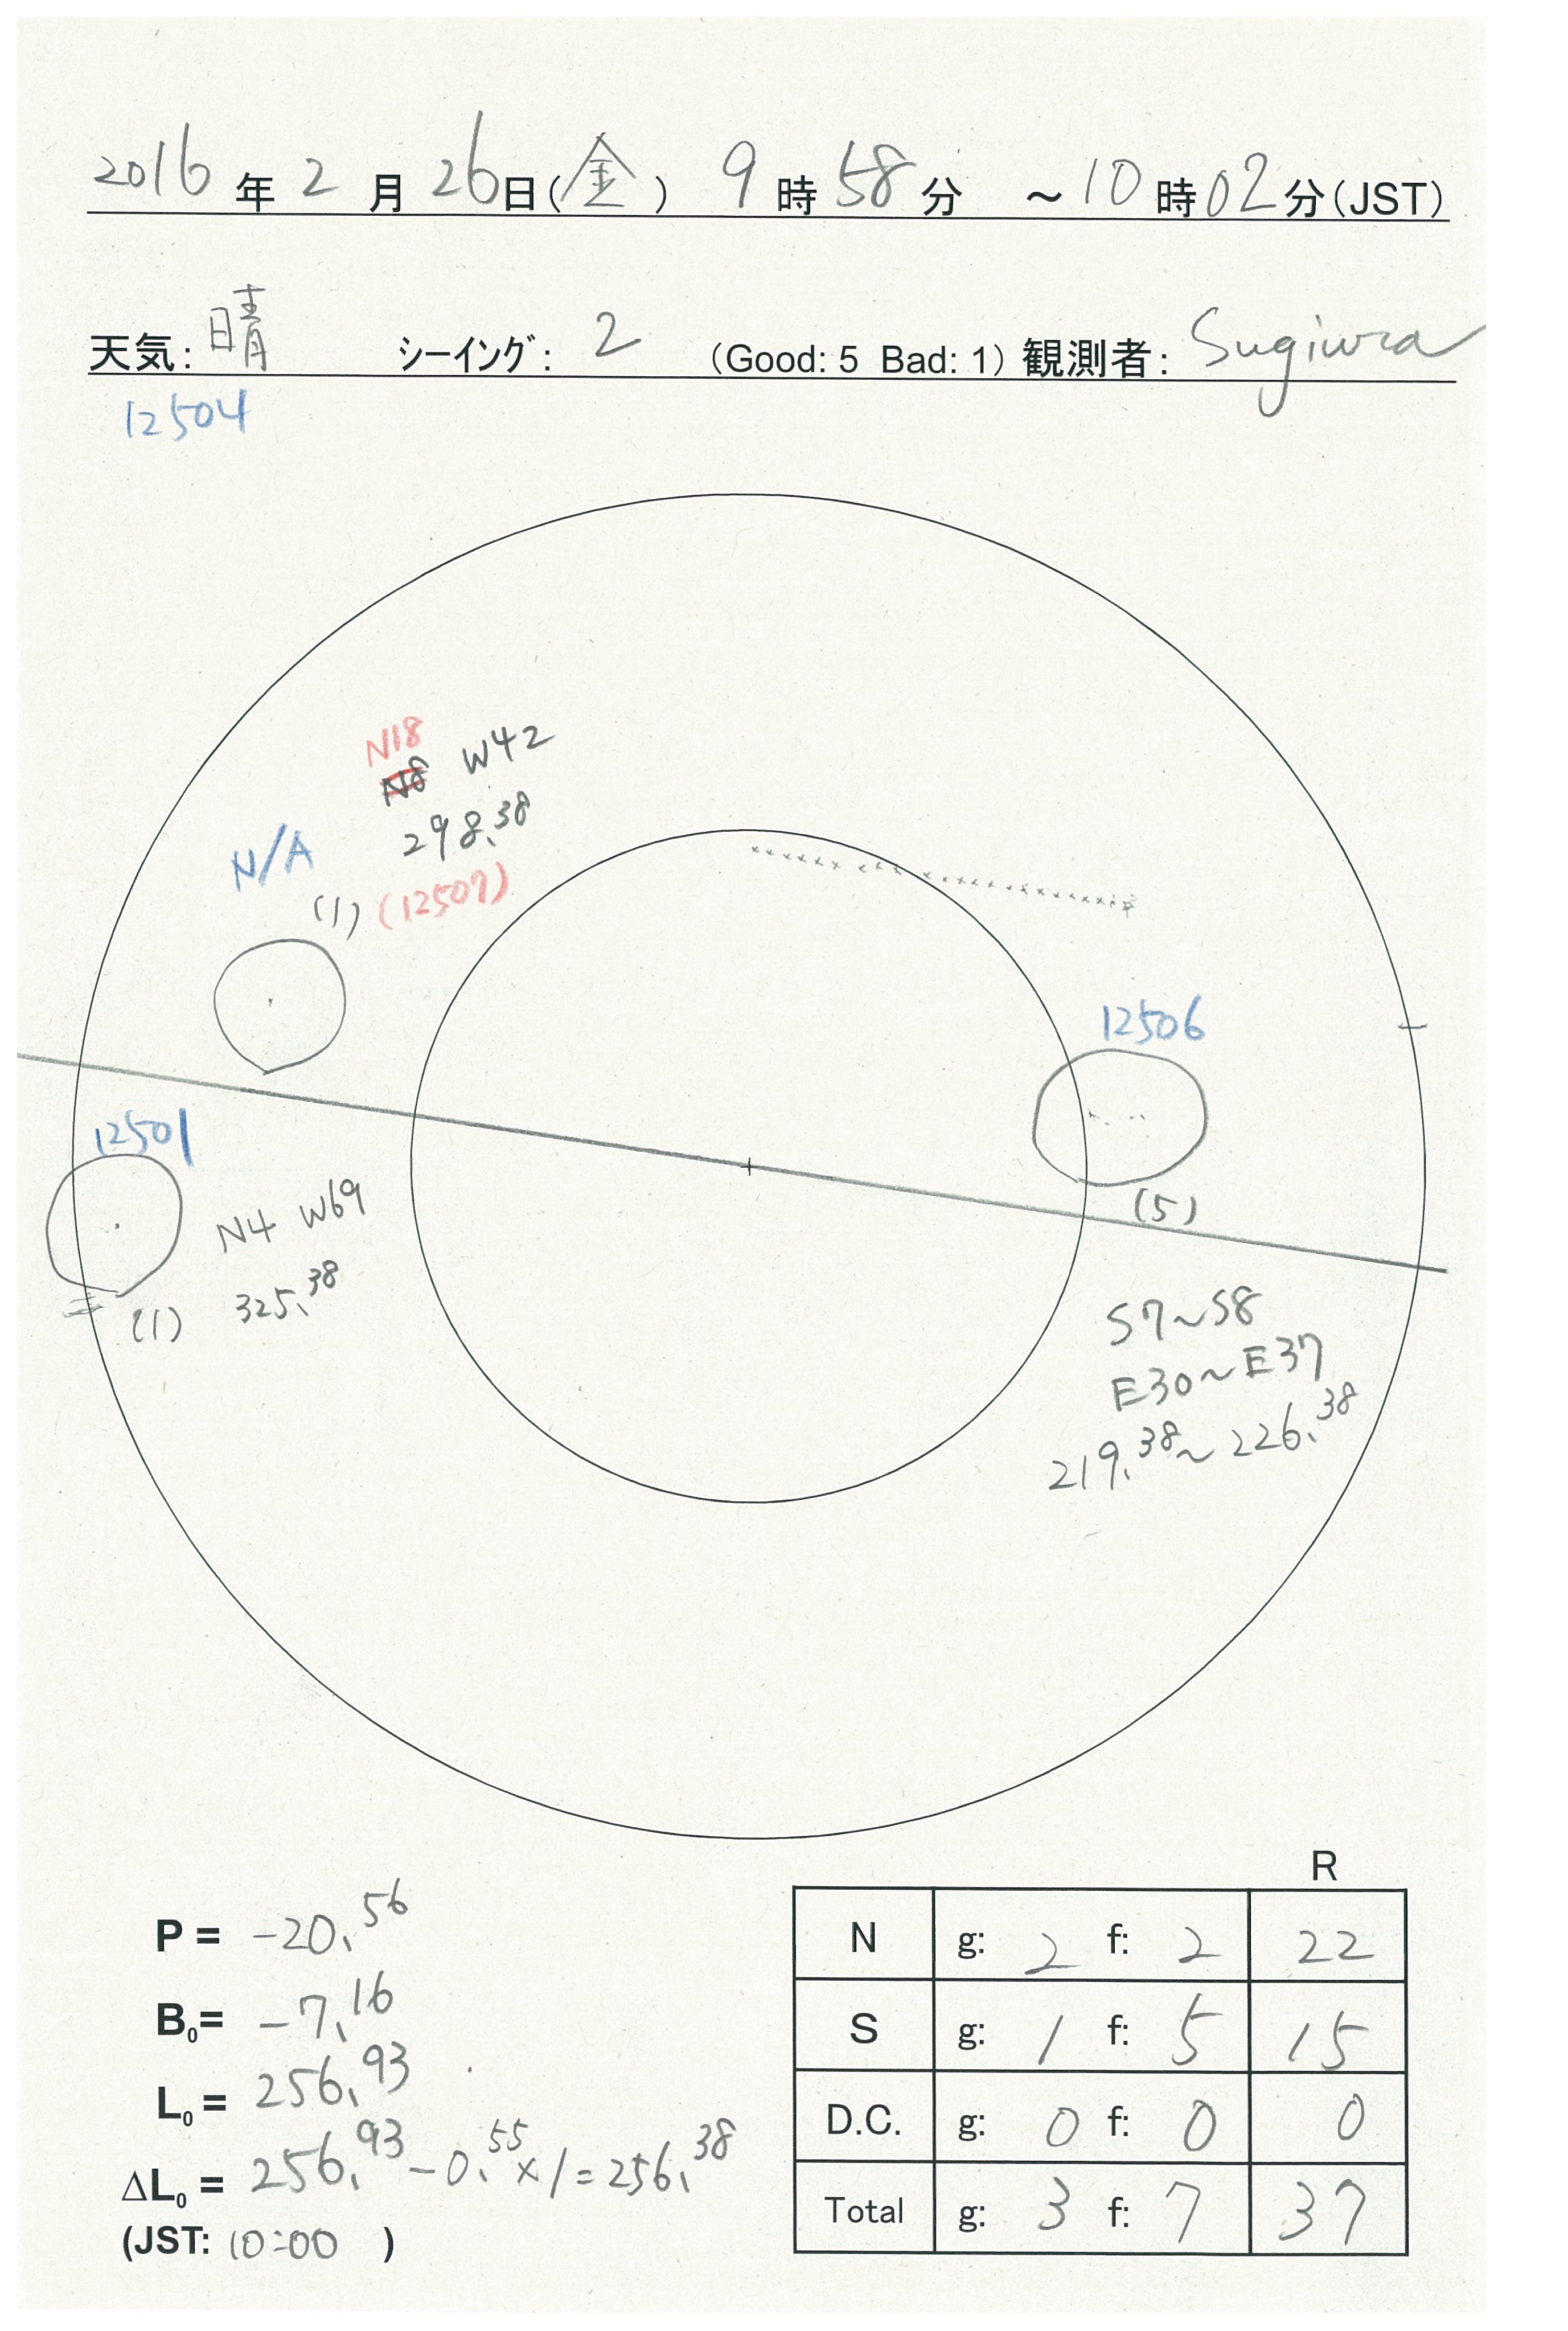 2016 年 2 月 26日(金) 9 時 58分 ~10 時02分(JST)
天気: 晴 シーイング: 2 (Good: 5 Bad: 1) 観測者: Sugiura
12504
N18
N8 W42
298.38
N/A
(1) (12507)
12506
12501
(5)
N4 W69
325.38
(1)
S7~S8
E30~E37
219.38~226.38
R
P = -20.56
B0= -7.16
L0 = 256.93
ΔL0 = 256.93-0.55×1=256.38
(JST: 10:00 )
N g: 2 f: 2 22
S g: 1 f: 5 15
D.C. g: 0 f: 0 0
Total g: 3 f: 7 37